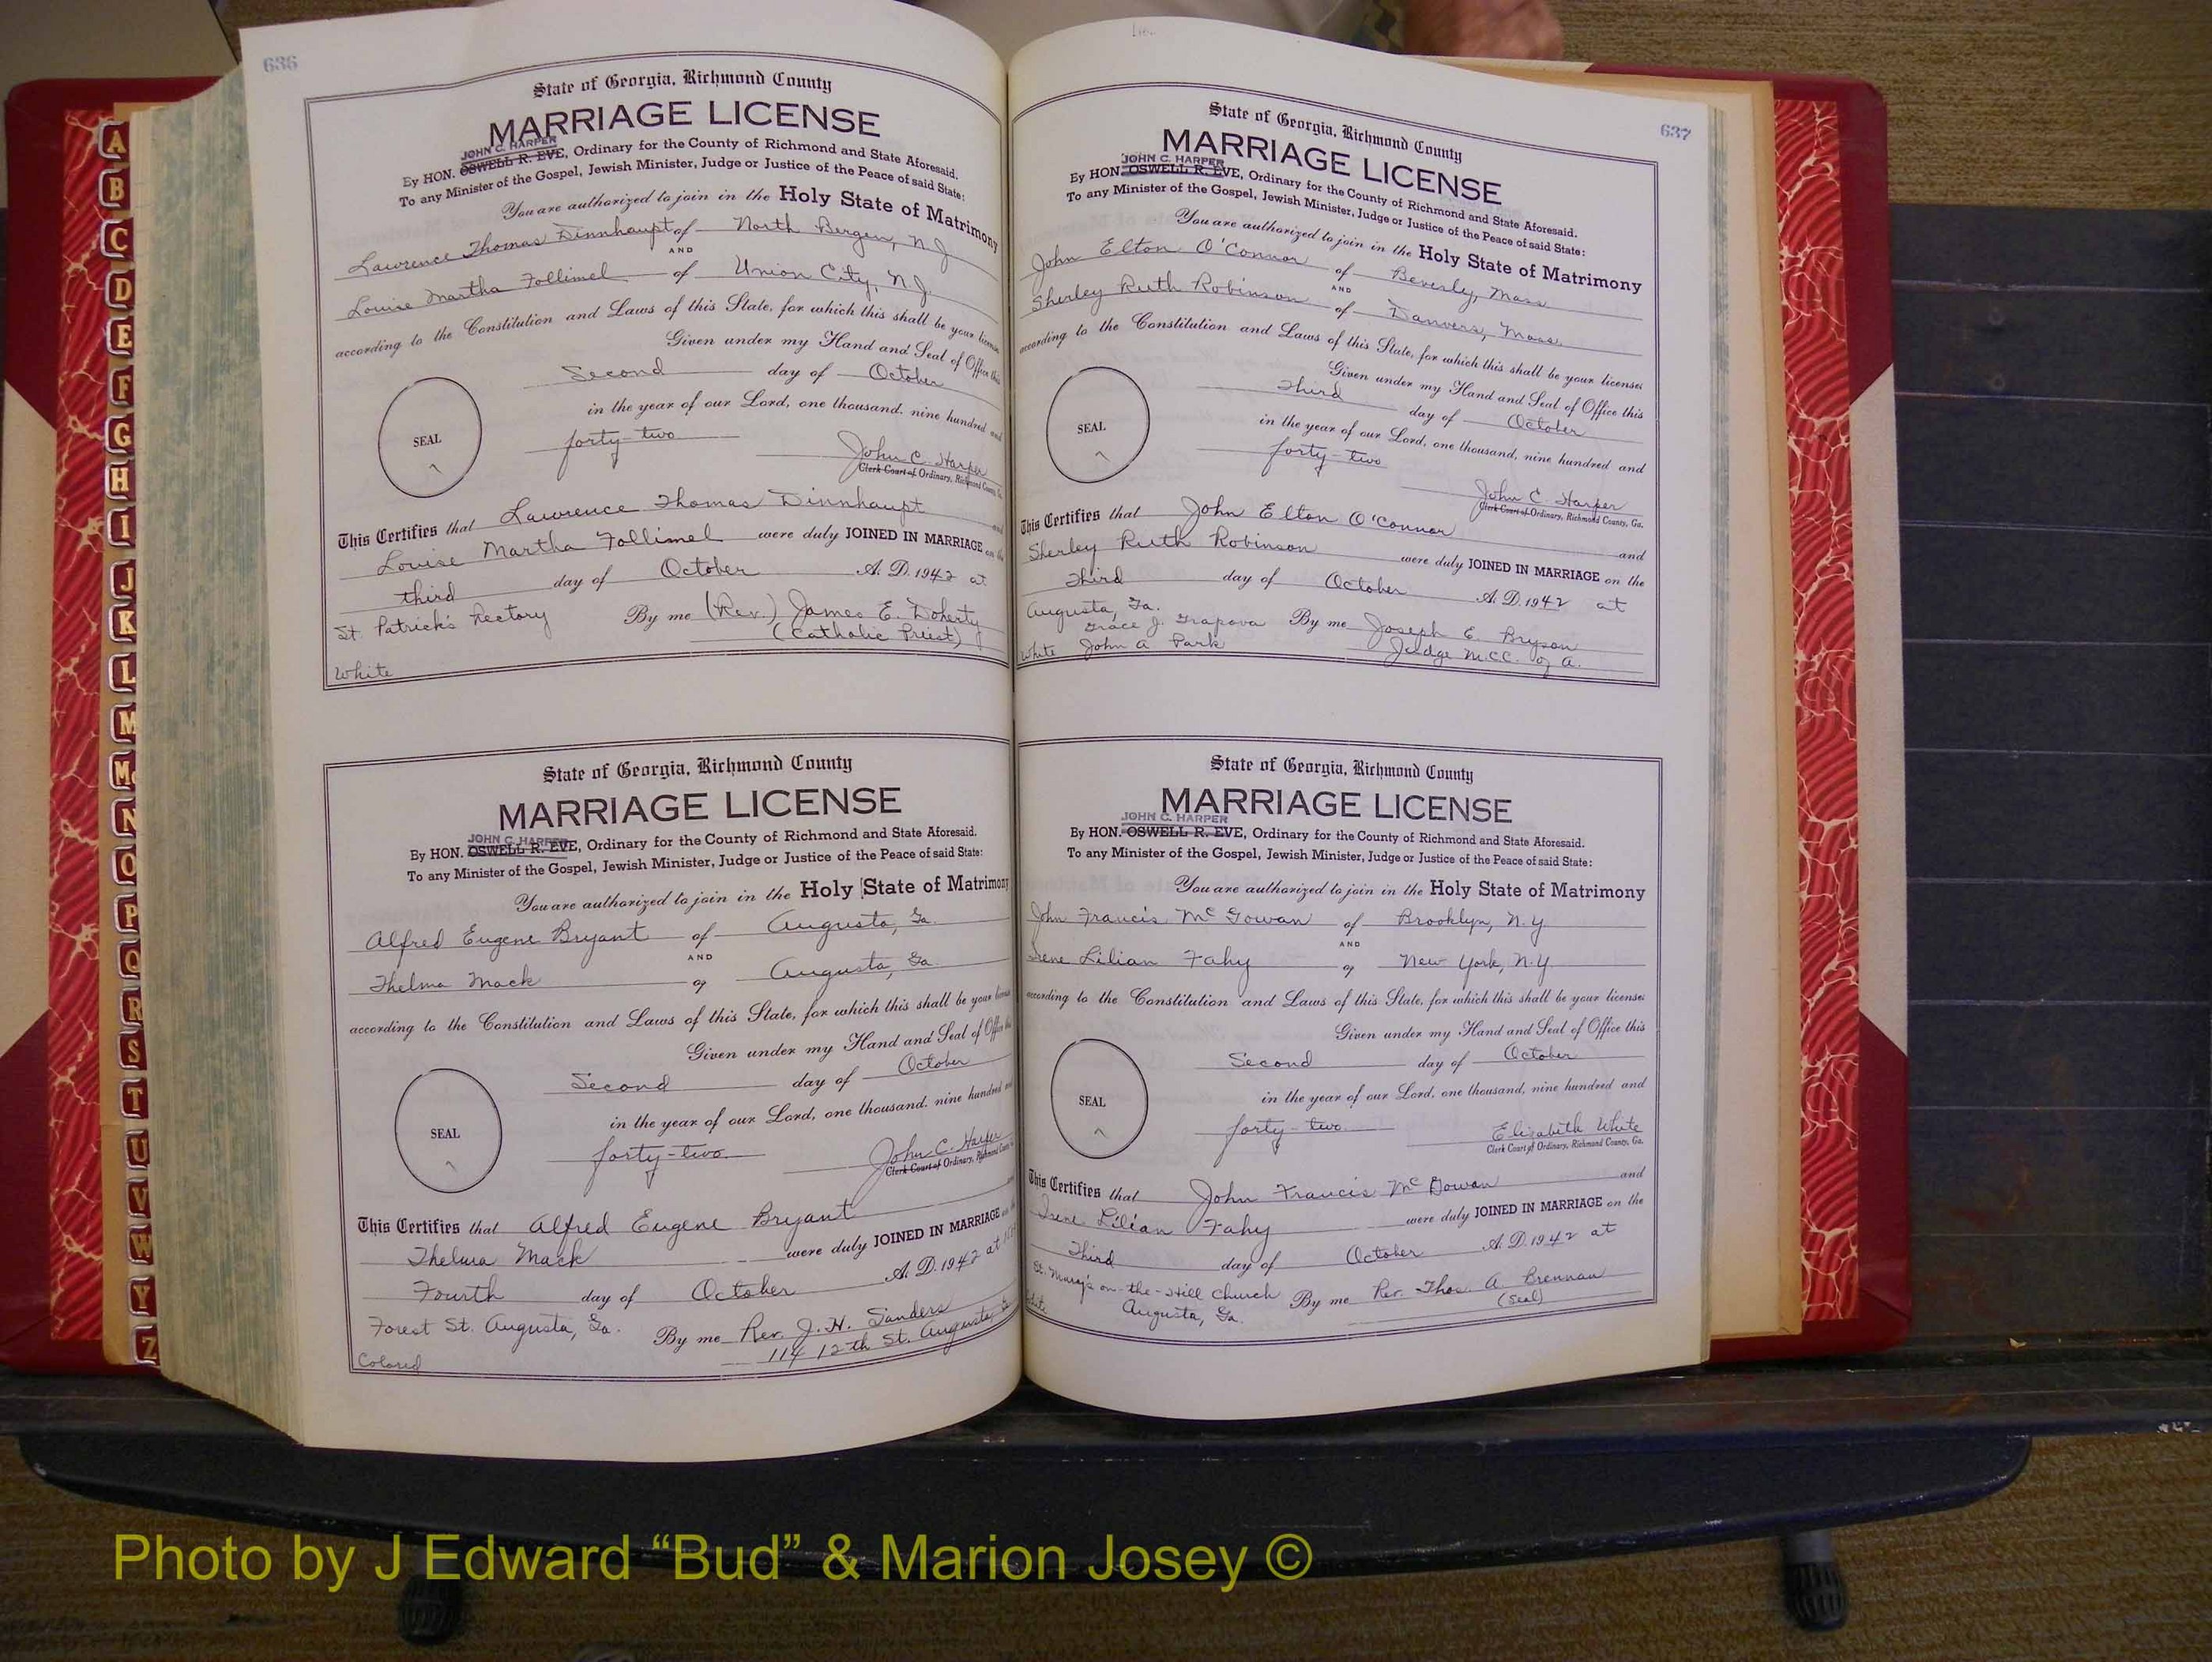 636
State of Georgia, Richmond County
MARRIAGE LICENSE
JOHN C. HARPER
By HON. OSWELL R. EVE, Ordinary for the County of Richmond and State Aforesaid.
To any Minister of the Gospel, Jewish Minister, Judge or Justice of the Peace of said State:
You are authorized to join in the Holy State of Matrimony
Lawrence Thomas Dinnhaupt of North Bergen, N.J.
AND
Louise Martha Follimel of Union City, N.J.
according to the Constitution and Laws of this State, for which this shall be your license
Given under my Hand and Seal of Office this
Second day of October
in the year of our Lord, one thousand, nine hundred and
SEAL
forty-two
John C. Harper
Clerk Court of Ordinary, Richmond County, Ga.
This Certifies that Lawrence Thomas Dinnhaupt and
Louise Martha Follimel were duly JOINED IN MARRIAGE on the
third day of October A.D. 1942 at
St. Patrick's Rectory By me (Rev.) James E. Doherty
(Catholic Priest)
White
State of Georgia, Richmond County
MARRIAGE LICENSE
JOHN C. HARPER
By HON. OSWELL R. EVE, Ordinary for the County of Richmond and State Aforesaid.
To any Minister of the Gospel, Jewish Minister, Judge or Justice of the Peace of said State:
You are authorized to join in the Holy State of Matrimony
Alfred Eugene Bryant of Augusta, Ga.
AND
Thelma Mack of Augusta, Ga.
according to the Constitution and Laws of this State, for which this shall be your license
Given under my Hand and Seal of Office this
Second day of October
in the year of our Lord, one thousand, nine hundred and
SEAL
forty-two
John C. Harper
Clerk Court of Ordinary, Richmond County
This Certifies that Alfred Eugene Bryant
Thelma Mack were duly JOINED IN MARRIAGE on the
Fourth day of October A.D. 1942 at
Forest St. Augusta, Ga. By me Rev. J. H. Sanders
114 12th St. Augusta, Ga
Colored
637
State of Georgia, Richmond County
MARRIAGE LICENSE
JOHN C. HARPER
By HON. OSWELL R. EVE, Ordinary for the County of Richmond and State Aforesaid.
To any Minister of the Gospel, Jewish Minister, Judge or Justice of the Peace of said State:
You are authorized to join in the Holy State of Matrimony
John Elton O'Connor of Beverly, Mass
AND
Sherley Ruth Robinson of Danvers, Mass.
according to the Constitution and Laws of this State, for which this shall be your license
Given under my Hand and Seal of Office this
Third day of October
in the year of our Lord, one thousand, nine hundred and
SEAL
forty-two
John C. Harper
Clerk Court of Ordinary, Richmond County, Ga.
This Certifies that John Elton O'Connor and
Sherley Ruth Robinson were duly JOINED IN MARRIAGE on the
Third day of October A.D. 1942 at
Augusta, Ga.
Grace J. Grapova By me Joseph E. Bryson
White John A Park Judge M.C.C. of A.
State of Georgia, Richmond County
MARRIAGE LICENSE
JOHN C. HARPER
By HON. OSWELL R. EVE, Ordinary for the County of Richmond and State Aforesaid.
To any Minister of the Gospel, Jewish Minister, Judge or Justice of the Peace of said State:
You are authorized to join in the Holy State of Matrimony
John Francis McGowan of Brooklyn, N.Y
AND
Irene Lilian Fahy of New York, N.Y.
according to the Constitution and Laws of this State, for which this shall be your license
Given under my Hand and Seal of Office this
Second day of October
in the year of our Lord, one thousand, nine hundred and
SEAL
forty-two
Elizabeth White
Clerk Court of Ordinary, Richmond County, Ga.
This Certifies that John Francis McGowan and
Irene Lilian Fahy were duly JOINED IN MARRIAGE on the
Third day of October A.D. 1942 at
St. Mary's on-the-Hill Church By me Rev. Thos. A. Brennan
White Augusta, Ga. (Seal)
A
B
C
D
E
F
G
H
I
J
K
L
M
Mc
N
O
P
Q
R
S
T
U
V
W
Y
Z
Photo by J Edward “Bud” & Marion Josey ©